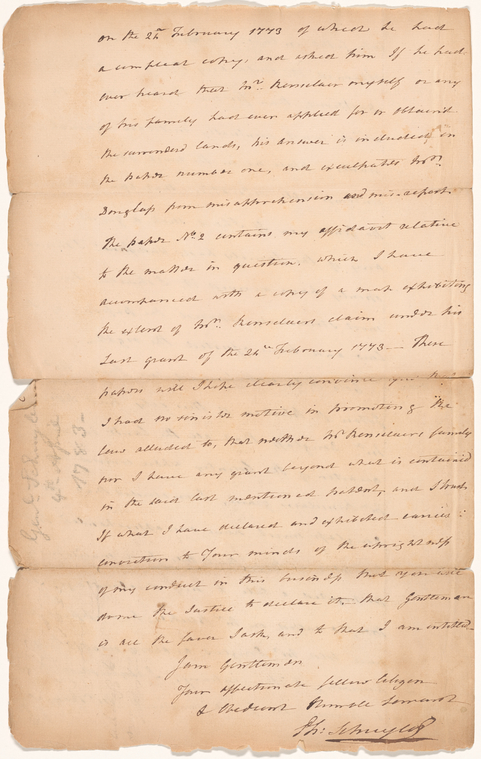 on the 24th February 1773 of which he had
a compleat copy, and asked him If he had
ever heard that Mr. Renselaer myself or any
of his family had ever applied for or obtained
the surrendered lands, his answer is included in
the paper number one, and exculpates Mr.
Douglass from misapprehension and misreport.
The paper No. 2 contains my affidavit relative
to the matter in question. which I have
accompanied with a copy of a map exhibiting
the extent of Mr. Renselaers claim under his
last grant of the 24th February 1773 — These
papers will I hope clearly convince you that
I had no sinister motive in promoting the
law alluded to, that neither Mr Renselaers family
nor I have any grant beyond what is contained
in the said last mentioned patent, and I trust
If what I have declared and exhibited carries
conviction to Your minds of the uprightness
of my conduct in this business that you will
do me the Justice to declare it. that Gentlemen
is all the favor I ask, and to that I am entitled
I am Gentlemen
Your affectionate fellow Citizen
& Obedient Humble Servant
Ph: Schuyler
Genl. Schuyler
4th April
1783 -